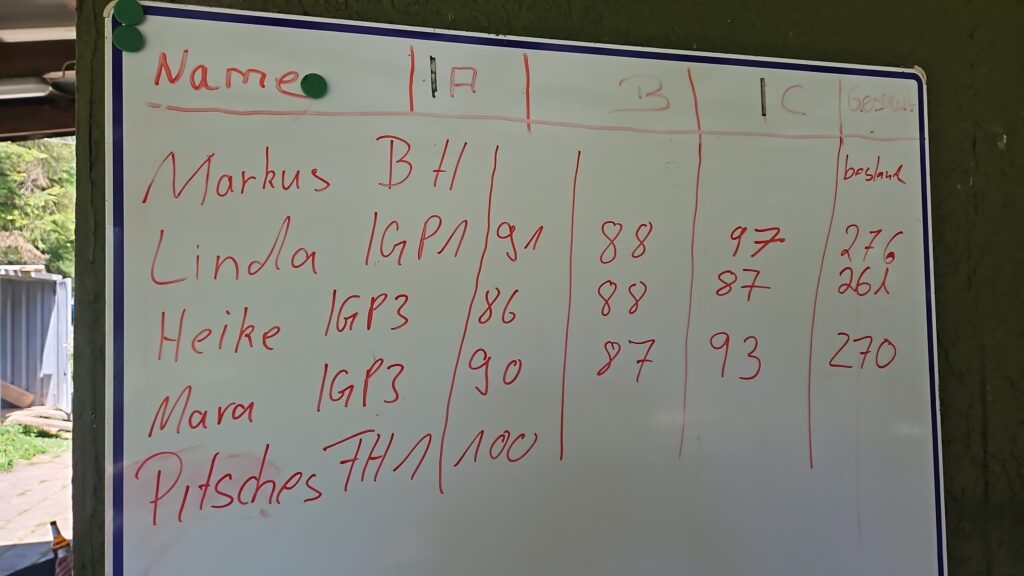 Name A B C Gesamt
Markus BH bestand
Linda IGP1 91 88 97 276
Heike IGP3 86 88 87 261
Mara IGP3 90 87 93 270
Pitsches FH1 100